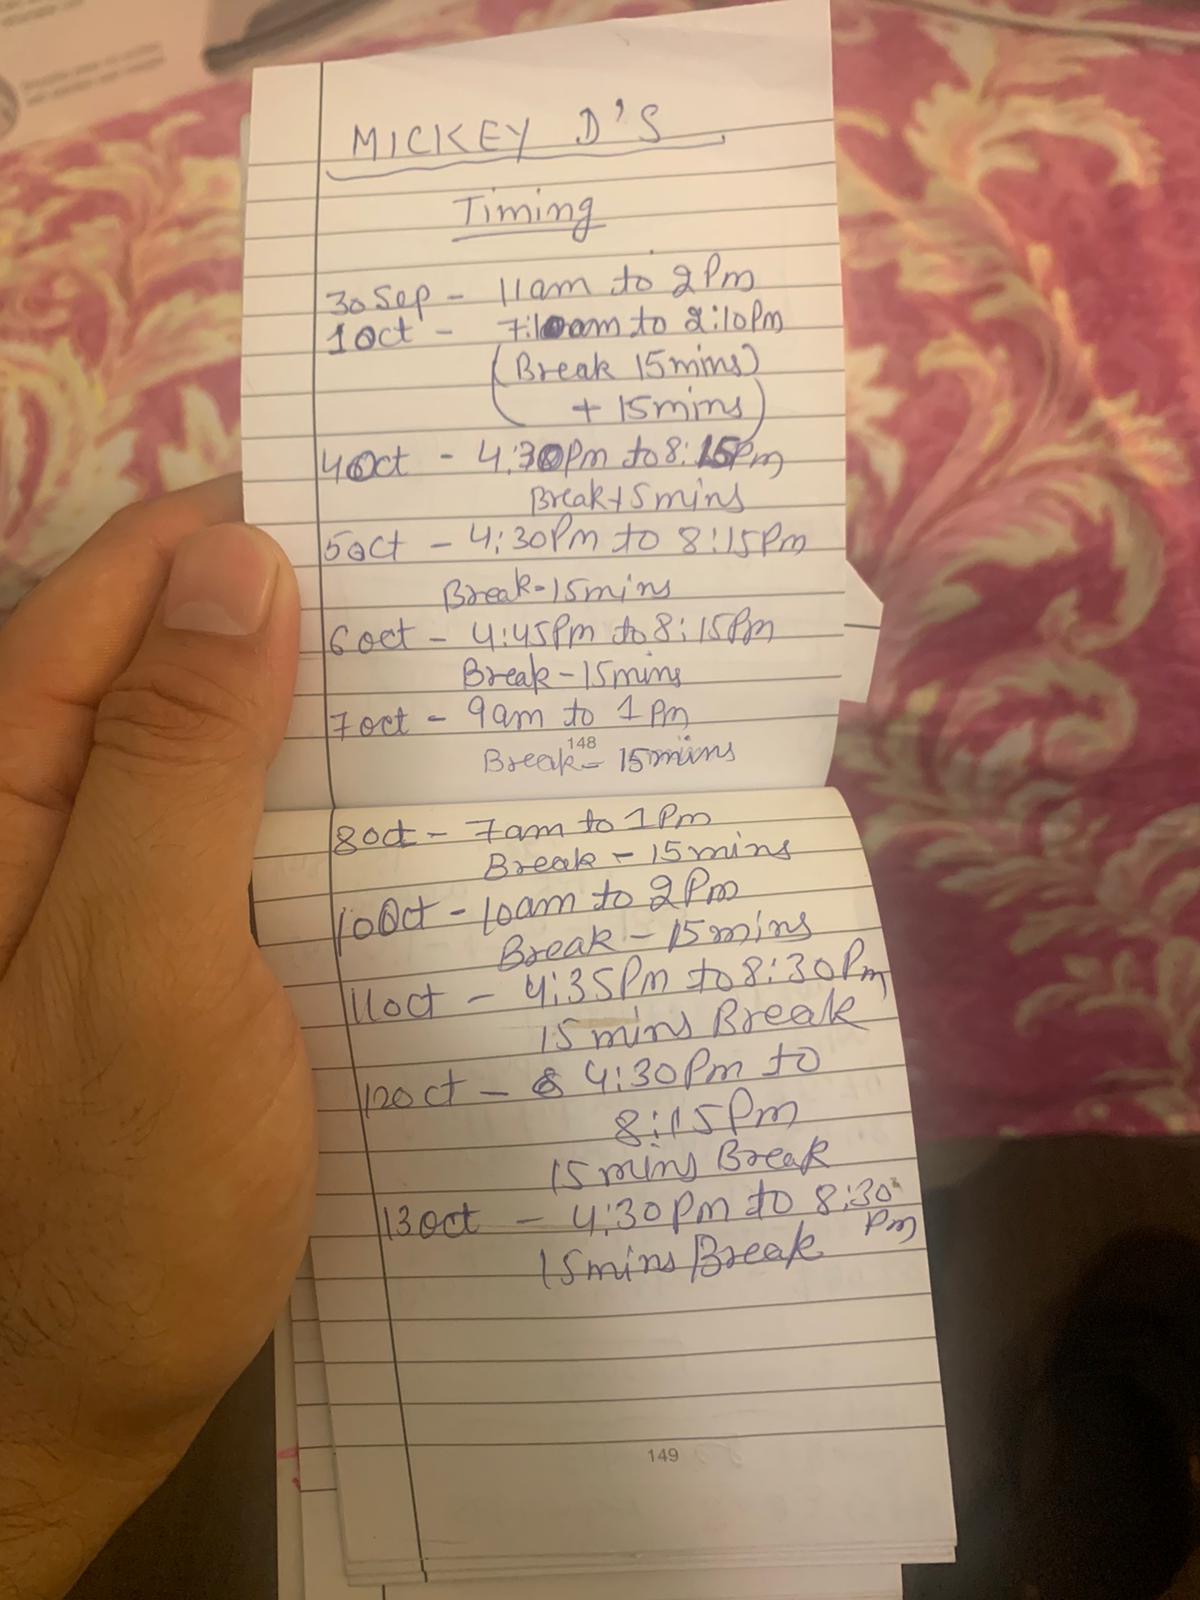 MICKEY D'S
Timing
30 Sep - 11am to 2Pm
1 Oct - 7:10am to 2:10Pm
(Break 15mins)
+ 15mins)
4 Oct - 4:30Pm to 8:15Pm
Break 15mins
5 Oct - 4:30Pm to 8:15Pm
Break - 15mins
6 Oct - 4:45Pm to 8:15Pm
Break - 15mins
7 Oct - 9am to 1Pm
148
Break - 15mins
8 Oct - 7am to 1Pm
Break - 15mins
10 Oct - 10am to 2Pm
Break - 15mins
11 Oct - 4:35Pm to 8:30Pm
15 mins Break
12 Oct - 4:30Pm to
8:15Pm
15 mins Break
13 Oct - 4:30Pm to 8:30
Pm
15mins Break
149